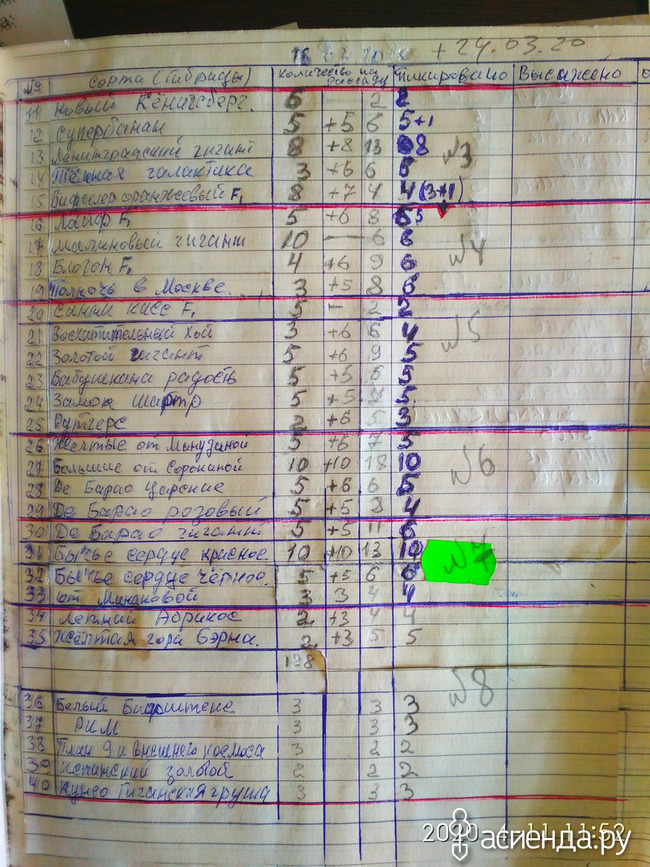 + 24.03.20
№ Сорта (Гибриды) Количество на рассаду Пикировано Высажено
11 Новый Кёнигсберг. 6 2 2
12 Супербанан 5 +5 6 5+1
13 Ленинградский гигант 8 +8 13 8 №3
14 Тёмная галактика 3 +6 6 5
15 оранжевый F1 8 +7 4 4(3+1)
16 Лайф F1 5 +6 8 5
17 Малиновый гигант 10 — 6 6 №4
18 Благон F1 4 +6 9 6
19 Полночь в Москве. 3 +5 8 6
20 Санни Кисс F1 5 – 2 2
21 Восхитительный Хой 3 +6 6 4 №5
22 Золотой гигант 5 +6 9 5
23 Бабушкина радость 5 +5 6 5
24 Замок Шартр 5 +5 5
25 Рутгерс 2 +6 5 3
26 Жёлтые от Минудиной 5 +6 7 5
27 Большие от Сорокиной 10 +10 18 10 №6
28 Де Барао Царские 5 +6 6 5
29 Де Барао розовый 5 +5 4
30 Де Барао гигант 5 +5 11 6
31 Бычье сердце красное 10 +10 13 10 №7
32 Бычье сердце чёрное. 5 +5 6 6
33 от Минаковой 3 3 4 4
34 Летний Абрикос 2 +3 4 4
35 Жёлтая гора Бэрна. 2 +3 5 5
128
№8
36 Белый Бифштекс 3 3 3
37 РИМ 3 3 3
38 План 9 из внешнего космоса 3 2 2
39 Испанский золотой 2 2 2
40 Кунео Гигантская груша 3 3 3
2020.4.11 11:52
асиенда.ру